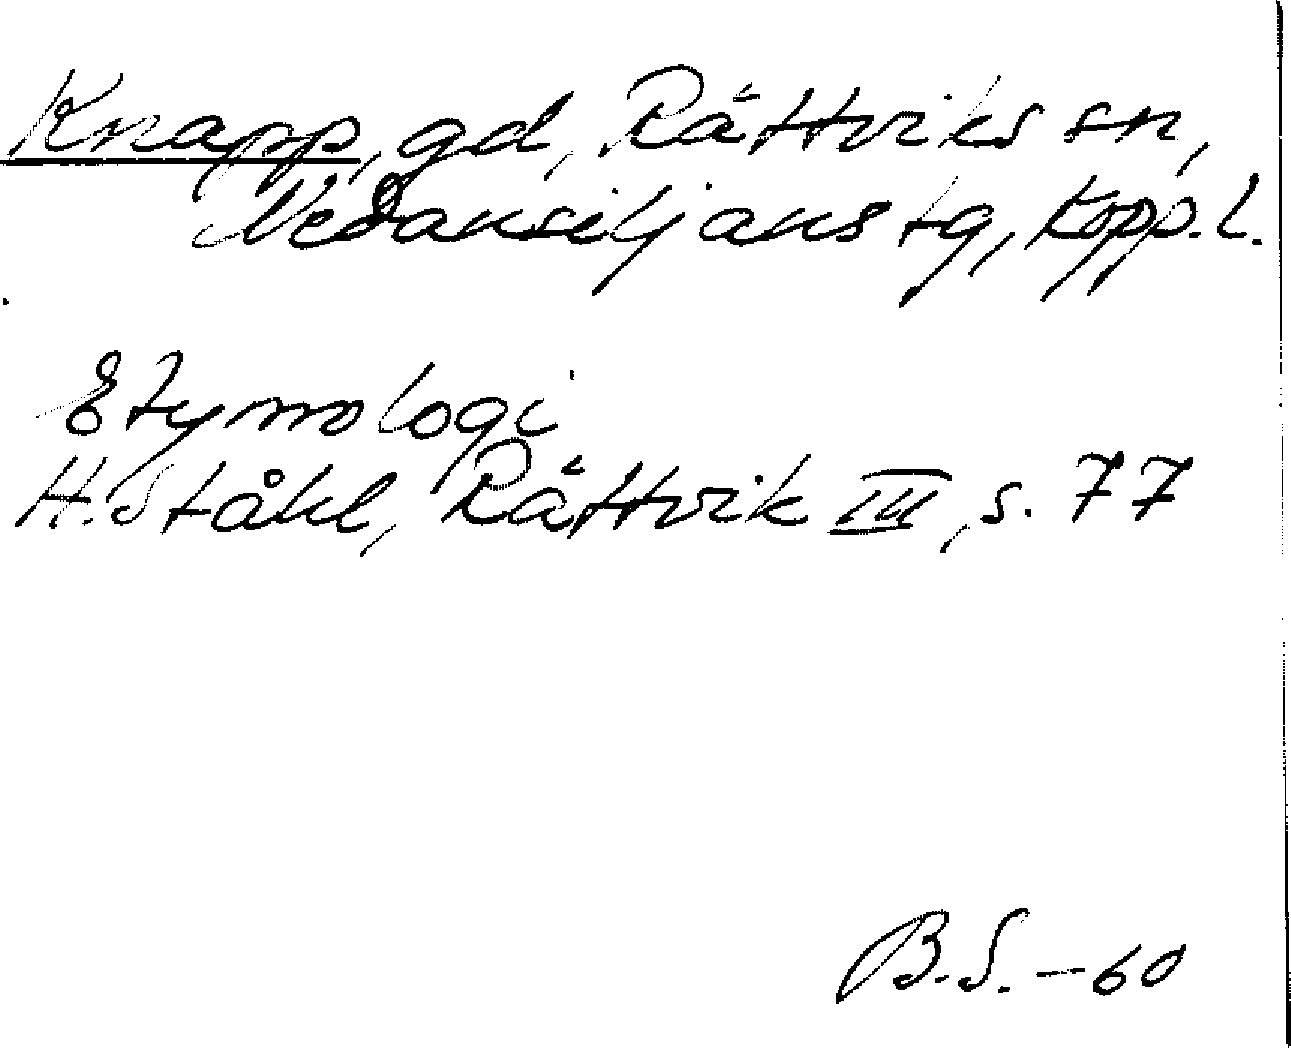 Knapp, gd, Rättviks sn,
Nedansiljans tg, Kopp. l.
Etymologi
H. Ståhl, Rättvik III, s. 77
B.S. - 60